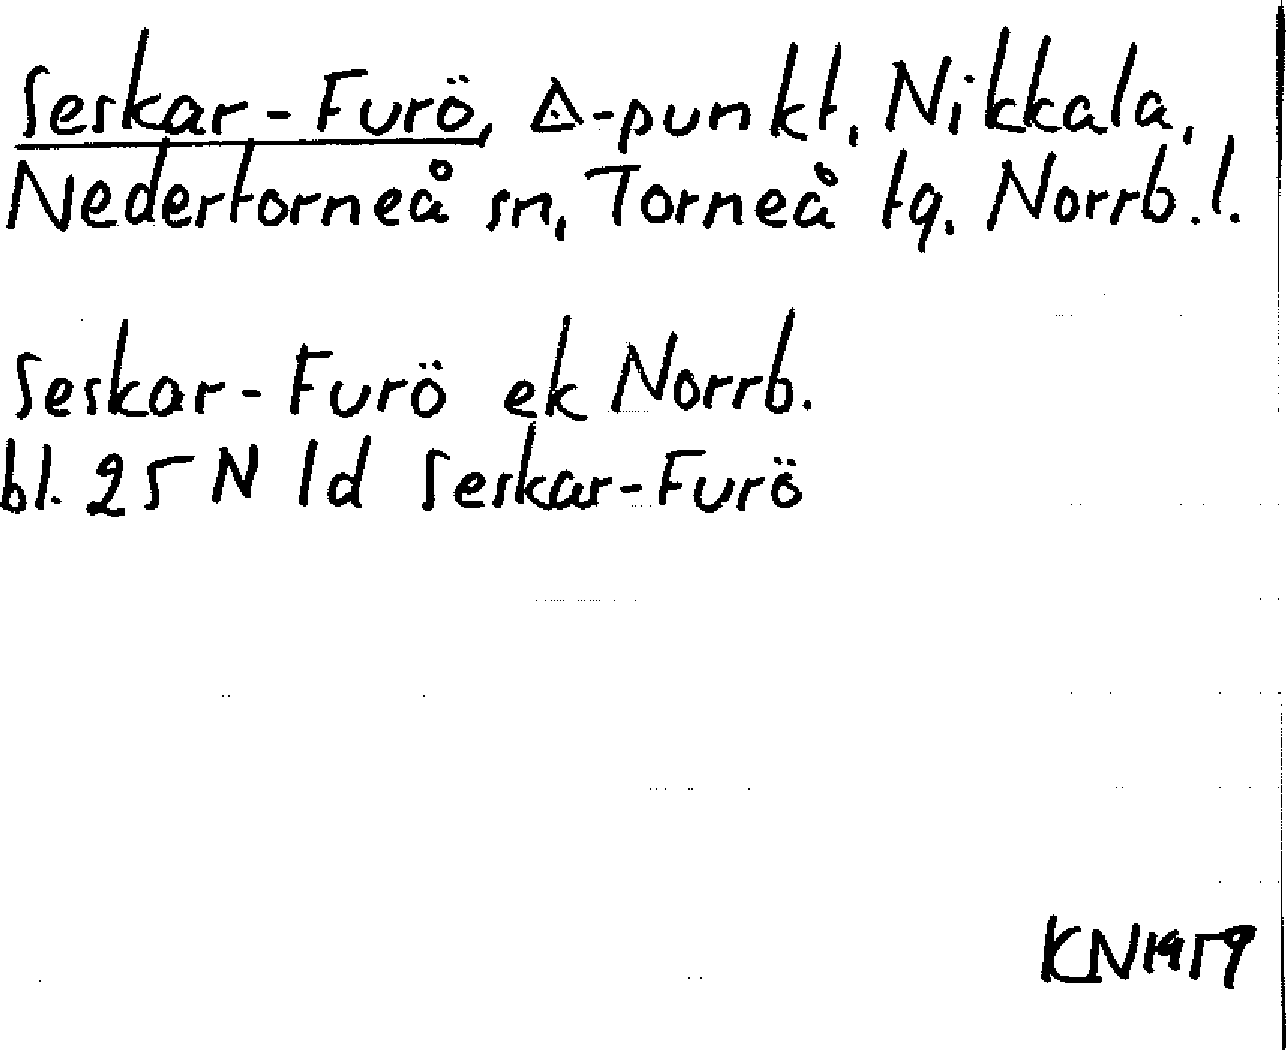 Seskar-Furö, △-punkt, Nikkala,
Nedertorneå sn, Torneå tg. Norrb.l.
Seskar-Furö ek Norrb.
bl. 25 N 1d Seskar-Furö
KN1959